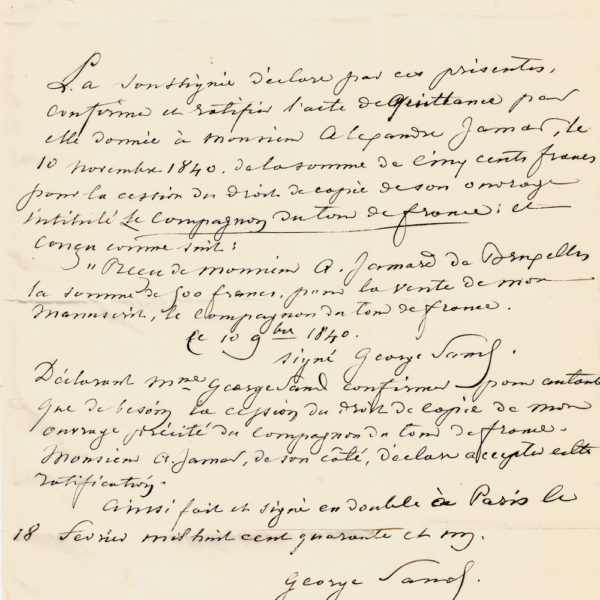 La soussignée déclare par ces présentes,
confirme et ratifier l'acte de Quittance par
elle donnée à Monsieur Alexandre Jamar, le
10 novembre 1840, de la somme de Cinq cents francs
pour la cession du droit de copie de son ouvrage
intitulé Le Compagnon du tour de france : et
conçu comme suit :
"Reçu de monsieur A. Jamard de Bruxelles
la somme de 500 francs, pour la vente de mon
Manuscrit, le Compagnon du tour de france.
Ce 10 9bre 1840.
signé George Sand.
Déclarant mme George Sand confirmer pour autant
que de besoin la cession du droit de copie de mon
ouvrage précité du Compagnon du tour de france.
Monsieur A. Jamar, de son côté, déclare accepter cette
ratification.
Ainsi fait et signé en double à Paris le
18 février mil huit cent quarante et un.
George Sand.